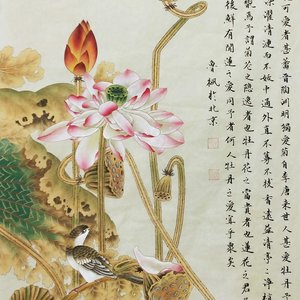 可愛者甚蕃晉陶淵明獨愛菊自李唐来世人甚愛牡丹
染濯清漣而不妖中通外直不蔓不枝香遠益清亭亭淨植
焉予謂菊花之隱逸者也牡丹花之富貴者也蓮花之君
後鮮有聞蓮之愛同予者何人牡丹之愛宜乎衆矣
魯楓於北京